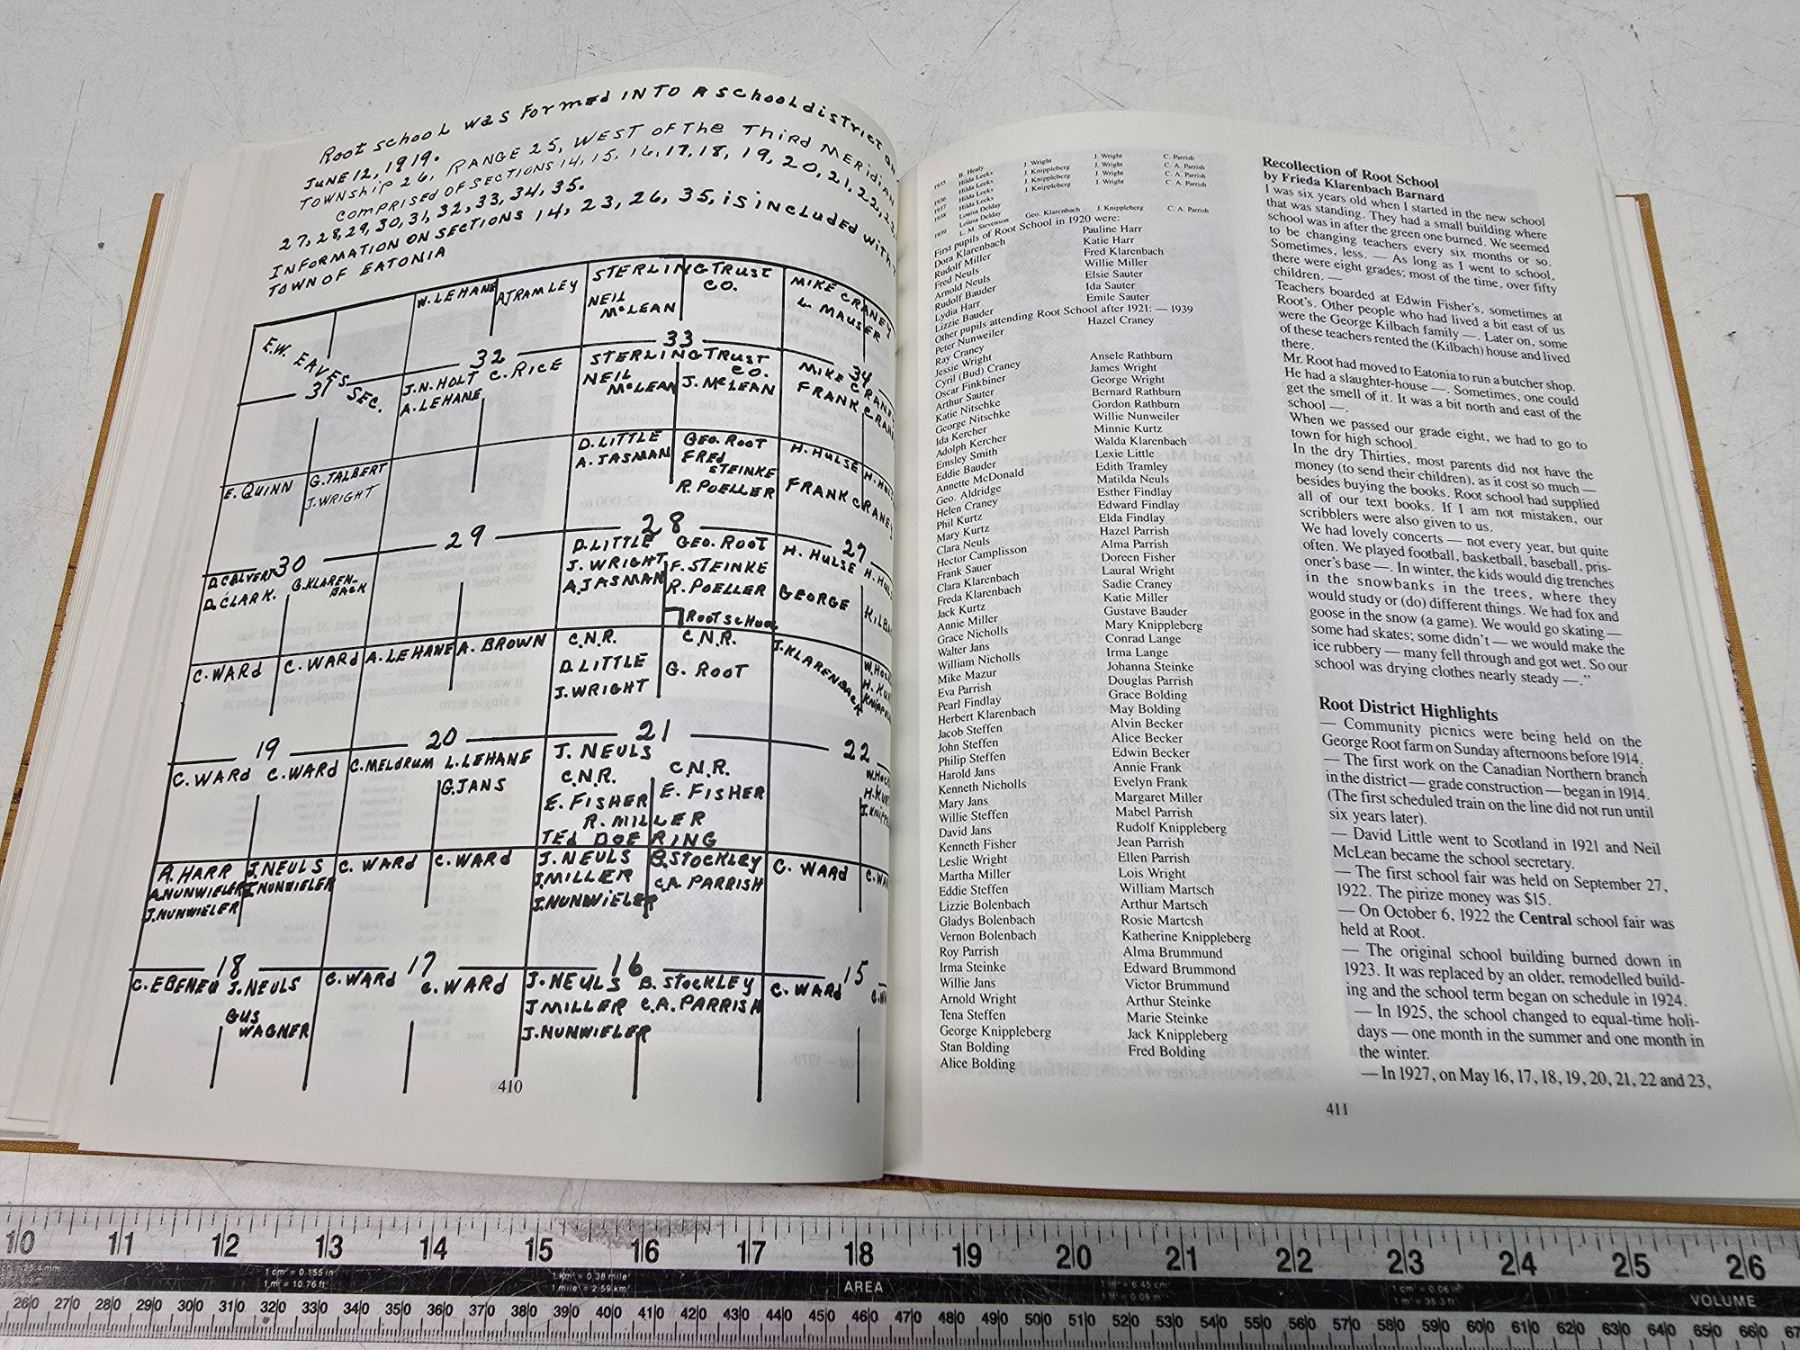 Root school was Formed INTO A school district on
JUNE 12, 1919.
TOWNSHIP 26, RANGE 25, WEST OF The Third MERIDIAN
COMPRISED OF SECTIONS 14, 15, 16, 17, 18, 19, 20, 21, 22, 23
27, 28, 29, 30, 31, 32, 33, 34, 35.
INFORMATION ON SECTIONS 14, 23, 26, 35, is included with
TOWN OF EATONIA
W. LEHANE
A. TRAMLEY
STERLING TRUST
CO.
NEIL
McLEAN
MIKE CRANEY
L. MAUSER
E.W. EAVES
SEC.
31
32
33
34
J.N. HOLT
A. LEHANE
C. RICE
STERLING TRUST
CO.
NEIL
McLEAN
J. McLEAN
MIKE CRANEY
FRANK CRANEY
D. LITTLE
A. JASMAN
GEO. ROOT
FRED
STEINKE
R. POELLER
H. HULSE
FRANK CRANEY
E. QUINN
G. TALBERT
J. WRIGHT
30
29
28
27
D. CALVERT
D. CLARK.
G. KLAREN-
BACK
D. LITTLE
J. WRIGHT
A. JASMAN
GEO. ROOT
F. STEINKE
R. POELLER
ROOT SCHOOL
H. HULSE
GEORGE
C. WARD
C. WARD
A. LEHANE
A. BROWN
C.N.R.
D. LITTLE
J. WRIGHT
C.N.R.
G. ROOT
J. KLARENBACK
19
20
21
22
C. WARD
C. WARD
C. MELDRUM
L. LEHANE
G. JANS
J. NEULS
C.N.R.
E. FISHER
C.N.R.
E. FISHER
R. MILLER
TED DOERING
R. HARR
A. NUNWIELER
J. NUNWIELER
J. NEULS
J. NUNWIELER
C. WARD
C. WARD
J. NEULS
J. MILLER
J. NUNWIELER
B. STOCKLEY
C.A. PARRISH
C. WARD
18
17
16
15
C. EBENEU
J. NEULS
GUS
WAGNER
C. WARD
C. WARD
J. NEULS
J. MILLER
J. NUNWIELER
B. STOCKLEY
C.A. PARRISH
C. WARD
410
1935 B. Healy J. Wright J. Wright C. Parrish
Hilda Leeks J. Knippleberg J. Wright C. A. Parrish
1936 Hilda Leeks J. Knippleberg J. Wright C. A. Parrish
1937 Hilda Leeks J. Knippleberg J. Wright C. A. Parrish
1938 Louisa Delday
Louisa Delday
1939 L. M. Stevenson Geo. Klarenbach J. Knippleberg C. A. Parrish
First pupils of Root School in 1920 were:
Dora Klarenbach
Rudolf Miller
Fred Neuls
Arnold Neuls
Rudolf Bauder
Lydia Harr
Lizzie Bauder
Pauline Harr
Katie Harr
Fred Klarenbach
Willie Miller
Elsie Sauter
Ida Sauter
Emile Sauter
Other pupils attending Root School after 1921: — 1939
Peter Nunweiler
Ray Craney
Jessie Wright
Cyril (Bud) Craney
Oscar Finkbiner
Arthur Sauter
Katie Nitschke
George Nitschke
Ida Kercher
Adolph Kercher
Emsley Smith
Eddie Bauder
Annette McDonald
Geo. Aldridge
Helen Craney
Phil Kurtz
Mary Kurtz
Clara Neuls
Hector Camplisson
Frank Sauer
Clara Klarenbach
Freda Klarenbach
Jack Kurtz
Annie Miller
Grace Nicholls
Walter Jans
William Nicholls
Mike Mazur
Eva Parrish
Pearl Findlay
Herbert Klarenbach
Jacob Steffen
John Steffen
Philip Steffen
Harold Jans
Kenneth Nicholls
Mary Jans
Willie Steffen
David Jans
Kenneth Fisher
Leslie Wright
Martha Miller
Eddie Steffen
Lizzie Bolenbach
Gladys Bolenbach
Vernon Bolenbach
Roy Parrish
Irma Steinke
Willie Jans
Arnold Wright
Tena Steffen
George Knippleberg
Stan Bolding
Alice Bolding
Hazel Craney
Ansele Rathburn
James Wright
George Wright
Bernard Rathburn
Gordon Rathburn
Willie Nunweiler
Minnie Kurtz
Walda Klarenbach
Lexie Little
Edith Tramley
Matilda Neuls
Esther Findlay
Edward Findlay
Elda Findlay
Hazel Parrish
Alma Parrish
Doreen Fisher
Laural Wright
Sadie Craney
Katie Miller
Gustave Bauder
Mary Knippleberg
Conrad Lange
Irma Lange
Johanna Steinke
Douglas Parrish
Grace Bolding
May Bolding
Alvin Becker
Alice Becker
Edwin Becker
Annie Frank
Evelyn Frank
Margaret Miller
Mabel Parrish
Rudolf Knippleberg
Jean Parrish
Ellen Parrish
Lois Wright
William Martsch
Arthur Martsch
Rosie Martcsh
Katherine Knippleberg
Alma Brummund
Edward Brummond
Victor Brummund
Arthur Steinke
Marie Steinke
Jack Knippleberg
Fred Bolding
Recollection of Root School
by Frieda Klarenbach Barnard
I was six years old when I started in the new school
that was standing. They had a small building where
school was in after the green one burned. We seemed
to be changing teachers every six months or so.
Sometimes, less. — As long as I went to school,
there were eight grades; most of the time, over fifty
children. —
Teachers boarded at Edwin Fisher's, sometimes at
Root's. Other people who had lived a bit east of us
were the George Kilbach family —. Later on, some
of these teachers rented the (Kilbach) house and lived
there.
Mr. Root had moved to Eatonia to run a butcher shop.
He had a slaughter-house —. Sometimes, one could
get the smell of it. It was a bit north and east of the
school —.
When we passed our grade eight, we had to go to
town for high school.
In the dry Thirties, most parents did not have the
money (to send their children), as it cost so much —
besides buying the books. Root school had supplied
all of our text books. If I am not mistaken, our
scribblers were also given to us.
We had lovely concerts — not every year, but quite
often. We played football, basketball, baseball, pris-
oner's base —. In winter, the kids would dig trenches
in the snowbanks in the trees, where they
would study or (do) different things. We had fox and
goose in the snow (a game). We would go skating —
some had skates; some didn't — we would make the
ice rubbery — many fell through and got wet. So our
school was drying clothes nearly steady —."
Root District Highlights
— Community picnics were being held on the
George Root farm on Sunday afternoons before 1914.
— The first work on the Canadian Northern branch
in the district — grade construction — began in 1914.
(The first scheduled train on the line did not run until
six years later).
— David Little went to Scotland in 1921 and Neil
McLean became the school secretary.
— The first school fair was held on September 27,
1922. The pirize money was $15.
— On October 6, 1922 the Central school fair was
held at Root.
— The original school building burned down in
1923. It was replaced by an older, remodelled build-
ing and the school term began on schedule in 1924.
— In 1925, the school changed to equal-time holi-
days — one month in the summer and one month in
the winter.
— In 1927, on May 16, 17, 18, 19, 20, 21, 22 and 23,
411
10 11 12 13 14 15 16 17 18 19 20 21 22 23 24 25 26
1 cm² = 0.155 in²
1 m² = 10.76 ft²
1 km² = 0.38 mile²
1 mile² = 2.59 km²
AREA
VOLUME
260 270 280 290 300 310 320 330 340 350 360 370 380 390 400 410 420 430 440 450 460 470 480 490 500 510 520 530 540 550 560 570 580 590 600 610 620 630 640 650 660 67